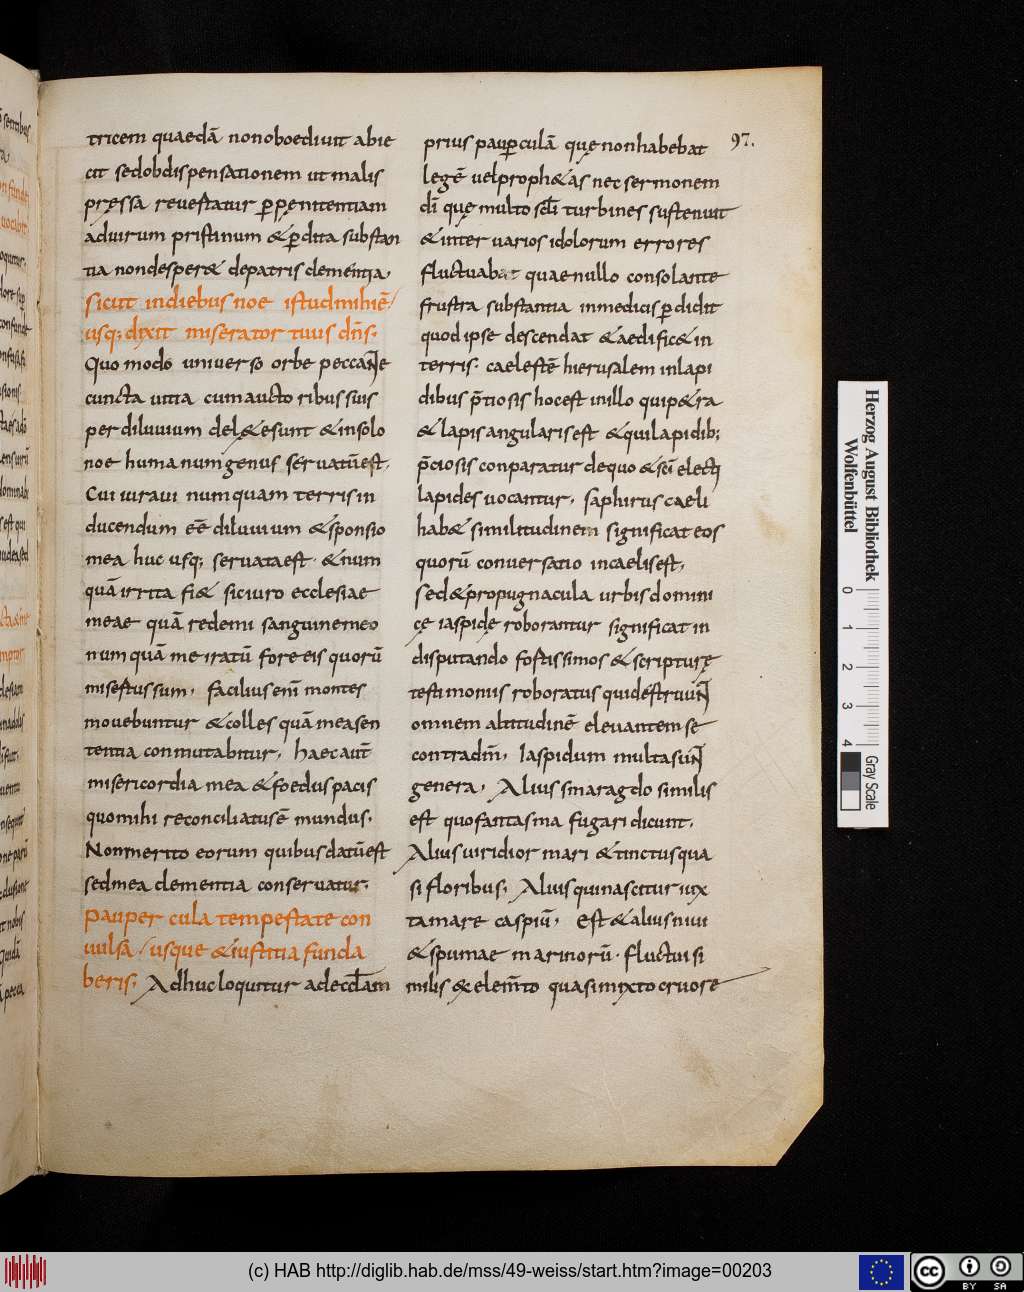 tricem quaedā nonoboediuit abie
cit sedobdispensationem ut malis
pręssa reuestatur ꝑpęnitentiam
aduirum pristinum &ꝑdita substan
tia nondesper& depatris clementia,
sicut indiebus noe istudmihiē /
usq; dixit miserator tuus dn̄s;
Quo modo uniuerso orbe peccante
cuncta uitia cumauctoribus suis
per diluuium del&esunt &insolo
noe humanumgenus seruatūest,
Cui iuraui numquam terris in
ducendum eē diluuium &sponsio
mea huc usq; seruataest · &num
quā irrita fi& siciuro ecclesiae
meae quā redemi sanguinemeo
numquā me iratū fore eis quorū
misertussum, facilius enī montes
mouebuntur &colles quā measen
tentia conmutabitur, haec aut̄
misericordia mea &foedus pacis
quomihi reconciliatusē mundus,
Nonmerito eorum quibus datūest
sedmea clementia conseruatur,
pauper cula tempestate con
uulsā / usque &iustitia funda
beris, Adhuc loquitur adeccl̄am
prius pauꝑculā quę nonhabebat
legē uelproph&as nec sermonem
dī quę multo scl̄i turbines sustenuit
&inter uarios idolorum errores
fluctuabat quae nullo consolante
frustra substantia inmedicis ꝑdidit
quod ipse descendat &aedific& in
terris, caelestē hierusalem inlapi
dibus p̄tiosis hocest inillo quip&ra
& lapis angularis est &quilapidib;
p̄ciosis conparatur dequo &scī electi
lapides uocantur, saphirus caeli
hab& similitudinem significat eos
quorū conuersatio incaelisest,
sed&propugnacula urbis domini
cę iaspide roborantur significat in
disputando fortissimos &scripturę
testimoniis roboratus quidestruunt
omnem altitudinē eleuantem se
contradn̄m, Iaspidum multasunt
genera, Alius smaragdo similis
est quofantasma fugari dicunt,
Alius uiridior mari &tinctusqua
si floribus, Alius quinascitur iux
ta mare caspiū, Est &alius niui
&spumae marinorū · fluctuū si
milis &clem̄to quasi mixto cruore
97.
Herzog August Bibliothek
Wolfenbüttel
0 1 2 3 4
Gray Scale
(c) HAB http://diglib.hab.de/mss/49-weiss/start.htm?image=00203
cc BY SA